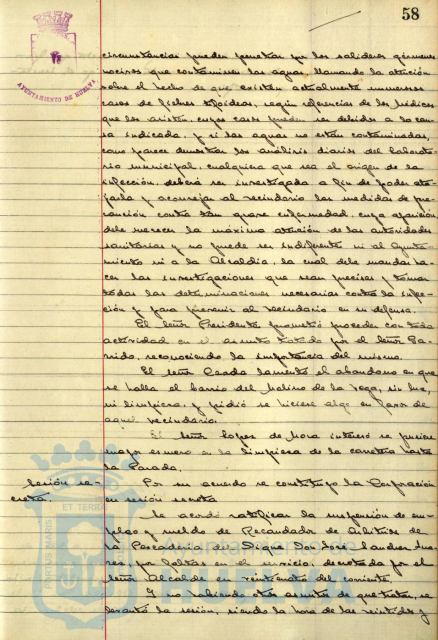 58
AYUNTAMIENTO DE HUELVA
circunstancias pueden penetrar por los salideros gérmenes
nocivos que contaminen las aguas, llamando la atención
sobre el hecho de que existan actualmente numerosos
casos de fiebres tifoideas, según referencias de los médicos
que los asisten, cuyos casos pueden ser debidos a la cau-
sa indicada, y si las aguas no están contaminadas,
como parece demostrar los análisis diarios del laborato-
rio municipal, cualquiera que sea el origen de la
infección, deberá ser investigada a fin de poder ata-
jarla y aconsejar al vecindario las medidas de pre-
caución contra tan grave enfermedad, cuya aparición
debe merecer la máxima atención de las autoridades
sanitarias y no puede ser indiferente ni al Ayunta-
miento ni a la Alcaldía, la cual debe mandar ha-
cer las investigaciones que sean precisas y tomar
todas las determinaciones necesarias contra la infec-
ción y para prevenir al vecindario en su defensa.
El señor Presidente prometió proceder con toda
actividad en el asunto tratado por el señor Ga-
rrido, reconociendo la importancia del mismo.
El señor lamentó el abandono en que
se halla el barrio del Molino de la Vega, sin luz,
ni limpieza, y pidió se hiciese algo en favor de
aquel vecindario.
El señor López de Mora interesó se pusiera
mayor esmero en la limpieza de la carretera hasta
la Parada.
Sesión se-
creta.
Por su acuerdo se constituyó la Corporación
en sesión secreta
Se acordó ratificar la suspensión de em-
pleo y sueldo de Recaudador de arbitrios de
la Pescadería del Dique Don José Sánchez Suá-
rez, por faltas en el servicio, decretada por el
señor Alcalde en veinticuatro del corriente.
Y no habiendo otros asuntos de que tratar, se
levantó la sesión, siendo la hora de las veintidós y
PORTUS MARIS ET TERRAE
Ayuntamiento de
HUELVA